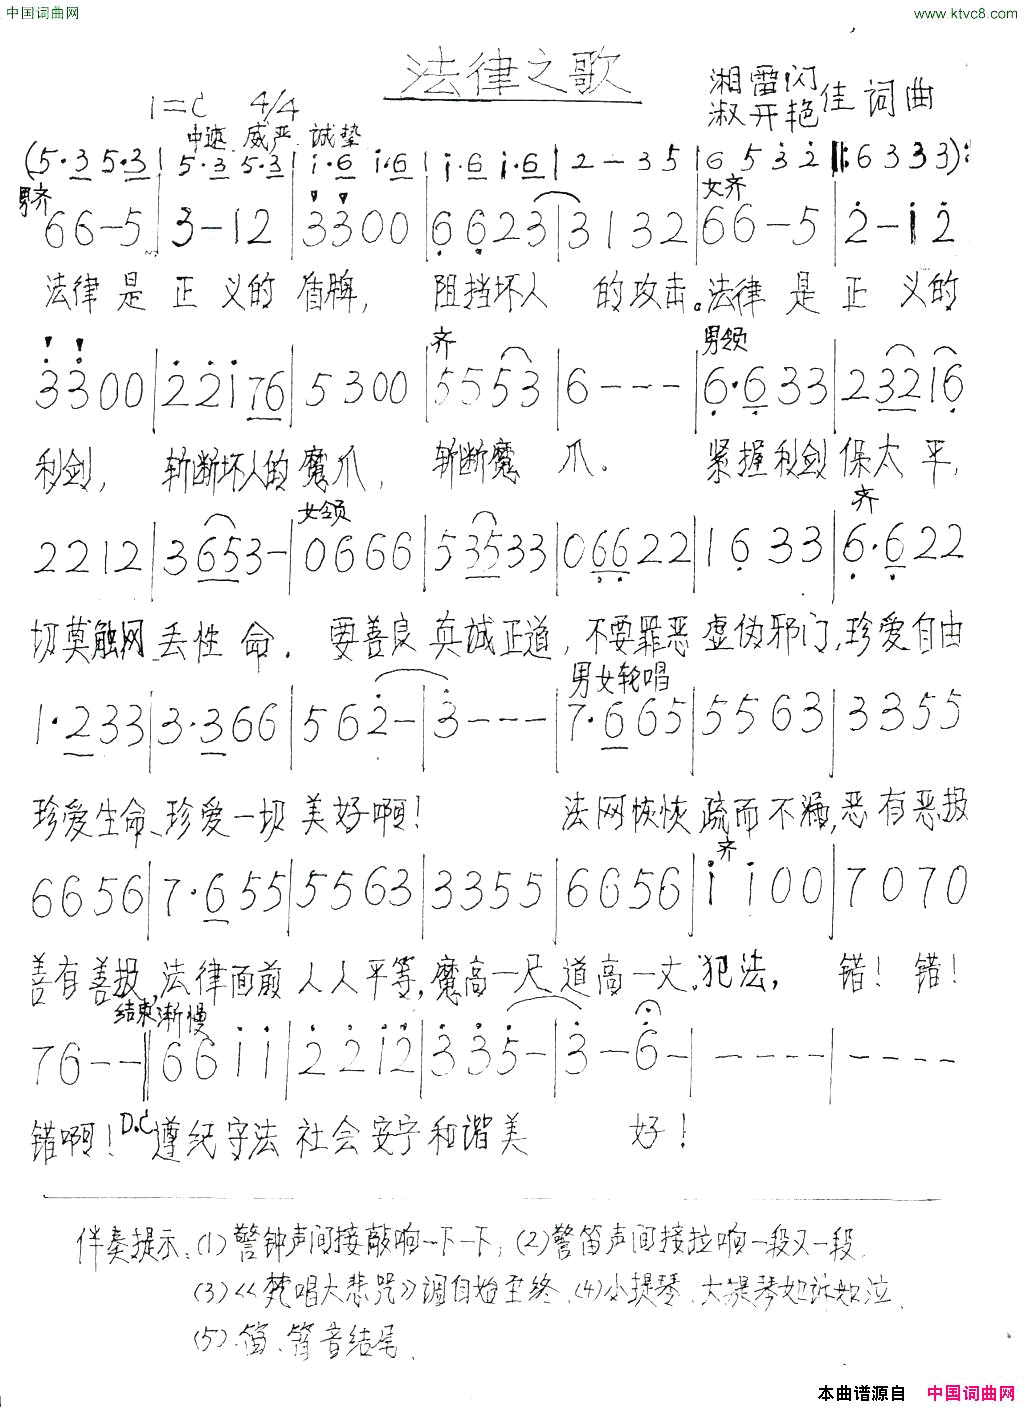 中国词曲网
www.ktvc8.com
法律之歌
1=C 4/4
湘雷闪
淑开艳佳 词曲
中速 威严 诚挚
(5·3 5·3 | 5·3 5·3 | i·6 i·6 | i·6 i·6 | 2 - 3 5 | 6 5 3 2 ‖: 6 3 3 3) :
男齐 女齐
6 6 - 5 | 3 - 1 2 | 3 3 0 0 | 6 6 2 3 | 3 1 3 2 | 6 6 - 5 | 2 - i 2
法律是正义的盾牌, 阻挡坏人 的攻击。法律是正义的
齐 男领
3 3 0 0 | 2 2 i 7 6 | 5 3 0 0 | 5 5 5 3 | 6 - - - | 6·6 3 3 | 2 3 2 1 6
利剑, 斩断坏人的魔爪, 斩断魔 爪。 紧握利剑保太平,
女领 齐
2 2 1 2 | 3 6 5 3 - | 0 6 6 6 | 5 3 5 3 3 | 0 6 6 2 2 | 1 6 3 3 | 6·6 2 2
切莫触网丢性命. 要善良真诚正道, 不要罪恶虚伪邪门, 珍爱自由
男女轮唱
1·2 3 3 | 3·3 6 6 | 5 6 2 - | 3 - - - | 7·6 6 5 | 5 5 6 3 | 3 3 5 5
珍爱生命、珍爱一切美好啊! 法网恢恢疏而不漏, 恶有恶报
齐
6 6 5 6 | 7·6 5 5 | 5 5 6 3 | 3 3 5 5 | 6 6 5 6 | i i 0 0 | 7 0 7 0
善有善报, 法律面前人人平等, 魔高一尺道高一丈. 犯法, 错! 错!
结束 渐慢
7 6 - - ‖ 6 6 i i | 2 2 i 2 | 3 3 5 - | 3 - 6 - | - - - - | - - - -
错啊! D.C 遵纪守法社会安宁和谐美 好!
伴奏提示:(1)警钟声间接敲响一下一下;(2)警笛声间接拉响一段又一段.
(3)《梵唱大悲咒》调自始至终.(4)小提琴、大提琴如诉如泣.
(5).笛、箫音结尾.
本曲谱源自 中国词曲网